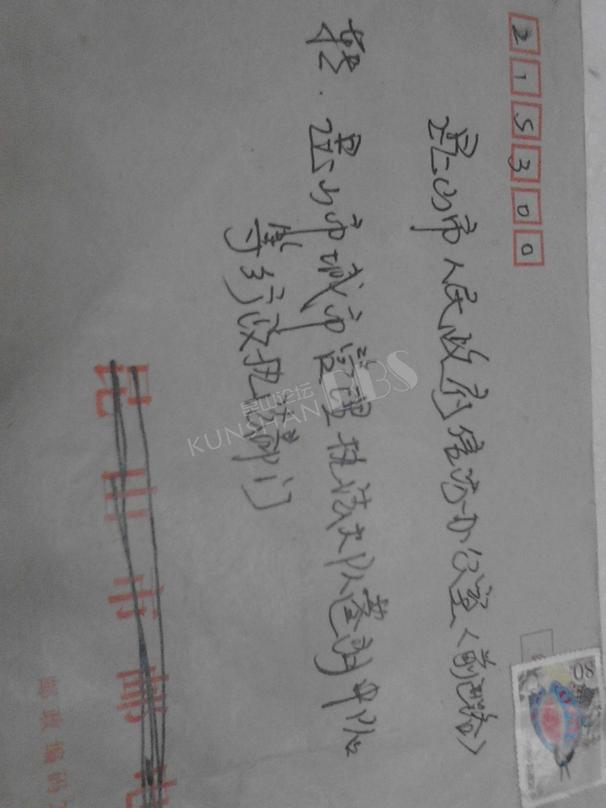 215300
昆山市人民政府信访办公室（前进路）
转：昆山市城市管理执法大队蓬朗中队
等行政执法部门
昆山论坛
KUNSHAN BBS
80
昆山市邮电
邮政编码